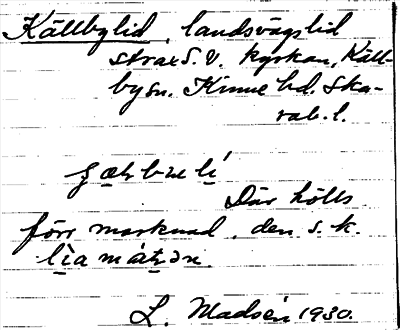 Källbylid, landsvägslid
strax S.V. kyrkan, Käll-
by sn. Kinne hd. Ska-
rab. l.
Där hölls
förr marknad, den s. k.
L. Madsén 1930.